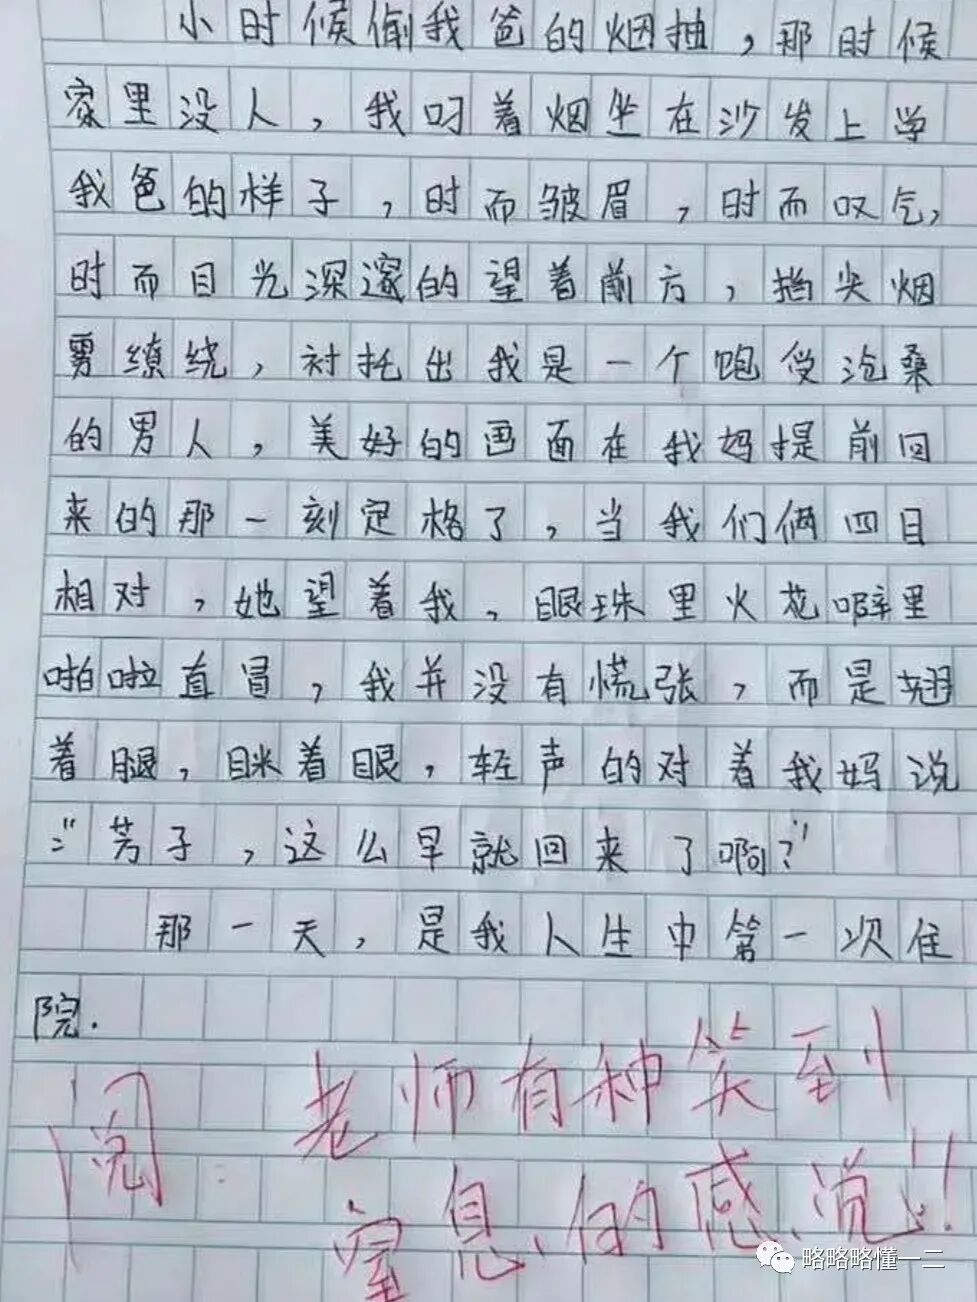 小时候偷我爸的烟抽，那时候
家里没人，我叼着烟坐在沙发上学
我爸的样子，时而皱眉，时而叹气，
时而目光深邃的望着前方，指尖烟
雾缭绕，衬托出我是一个饱受沧桑
的男人，美好的画面在我妈提前回
来的那一刻定格了，当我们俩四目
相对，她望着我，眼珠里火花噼里
啪啦直冒，我并没有慌张，而是翘
着腿，眯着眼，轻声的对着我妈说
：“芳子，这么早就回来了啊？”
那一天，是我人生中第一次住
院.
阅：老师有种笑到
窒息的感觉!!
略略略懂一二